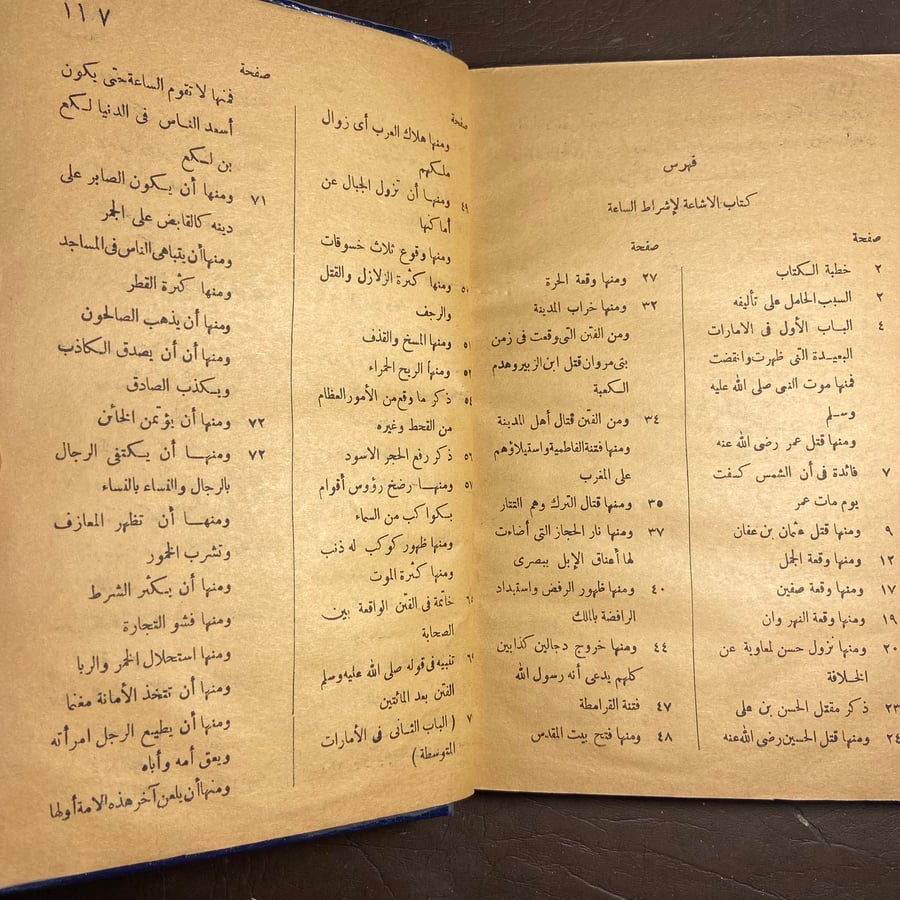 فهرس
كتاب الاشاعة لإشراط الساعة
صفحة
٢ خطبة الكتاب
٢ السبب الحامل على تأليفه
٤ الباب الأول فى الامارات
البعيدة التى ظهرت وانقضت
فمنها موت النبى صلى الله عليه
وسلم
ومنها قتل عمر رضى الله عنه
٧ فائدة فى أن الشمس كسفت
يوم مات عمر
٩ ومنها قتل عثمان بن عفان
١٢ ومنها وقعة الجمل
١٧ ومنها وقعة صفين
١٩ ومنها وقعة النهر وان
٢٠ ومنها نزول حسن لمعاوية عن
الخلافة
٢٣ ذكر مقتل الحسن بن على
٢٤ ومنها قتل الحسين رضى الله عنه
صفحة
٢٧ ومنها وقعة الحرة
٣٢ ومنها خراب المدينة
ومن الفتن التى وقعت فى زمن
بنى مروان قتل ابن الزبير وهدم
الكعبة
٣٤ ومن الفتن قتال أهل المدينة
ومنها فتنة الفاطمية واستيلاؤهم
على المغرب
٣٥ ومنها قتال الترك وهم التتار
٣٧ ومنها نار الحجاز التى أضاءت
لها أعناق الإبل ببصرى
٤٠ ومنها ظهور الرفض واستبداد
الرافضة بالملك
٤٤ ومنها خروج دجالين كذابين
كلهم يدعى أنه رسول الله
٤٧ فتنة القرامطة
٤٨ ومنها فتح بيت المقدس
١١٧
صفحة
ومنها هلاك العرب أى زوال
ملكهم
٤٩ ومنها أن تزول الجبال عن
أماكنها
ومنها وقوع ثلاث خسوفات
ومنها كثرة الزلازل والقتل
والرجف
٥١ ومنها المسخ والقذف
٥٢ ومنها الريح الحمراء
٥٤ ذكر ما وقع من الأمور العظام
من القحط وغيره
٥٦ ذكر رفع الحجر الاسود
٥٧ ومنها رضخ رؤوس أقوام
بكواكب من السماء
ومنها ظهور كوكب له ذنب
ومنها كثرة الموت
خاتمة فى الفتن الواقعة بين
الصحابة
تنبيه فى قوله صلى الله عليه وسلم
الفتن بعد المائتين
(الباب الثانى فى الأمارات
المتوسطة)
صفحة
فمنها لا تقوم الساعة حتى يكون
أسعد الناس فى الدنيا لكع
بن لكع
٧١ ومنها أن يكون الصابر على
دينه كالقابض على الجمر
ومنها أن يتباهى الناس فى المساجد
ومنها كثرة القطر
ومنها أن يذهب الصالحون
ومنها أن أن يصدق الكاذب
ويكذب الصادق
٧٢ ومنها أن يؤتمن الخائن
٧٢ ومنها أن يكتفى الرجال
بالرجال والنساء بالنساء
ومنها أن تظهر المعازف
وتشرب الخمور
ومنها أن يكثر الشرط
ومنها فشو التجارة
ومنها استحلال الخمر والربا
ومنها أن تتخذ الأمانة مغنما
ومنها أن يطيع الرجل امرأته
ويعق أمه وأباه
ومنها أن يلعن آخر هذه الامة أولها